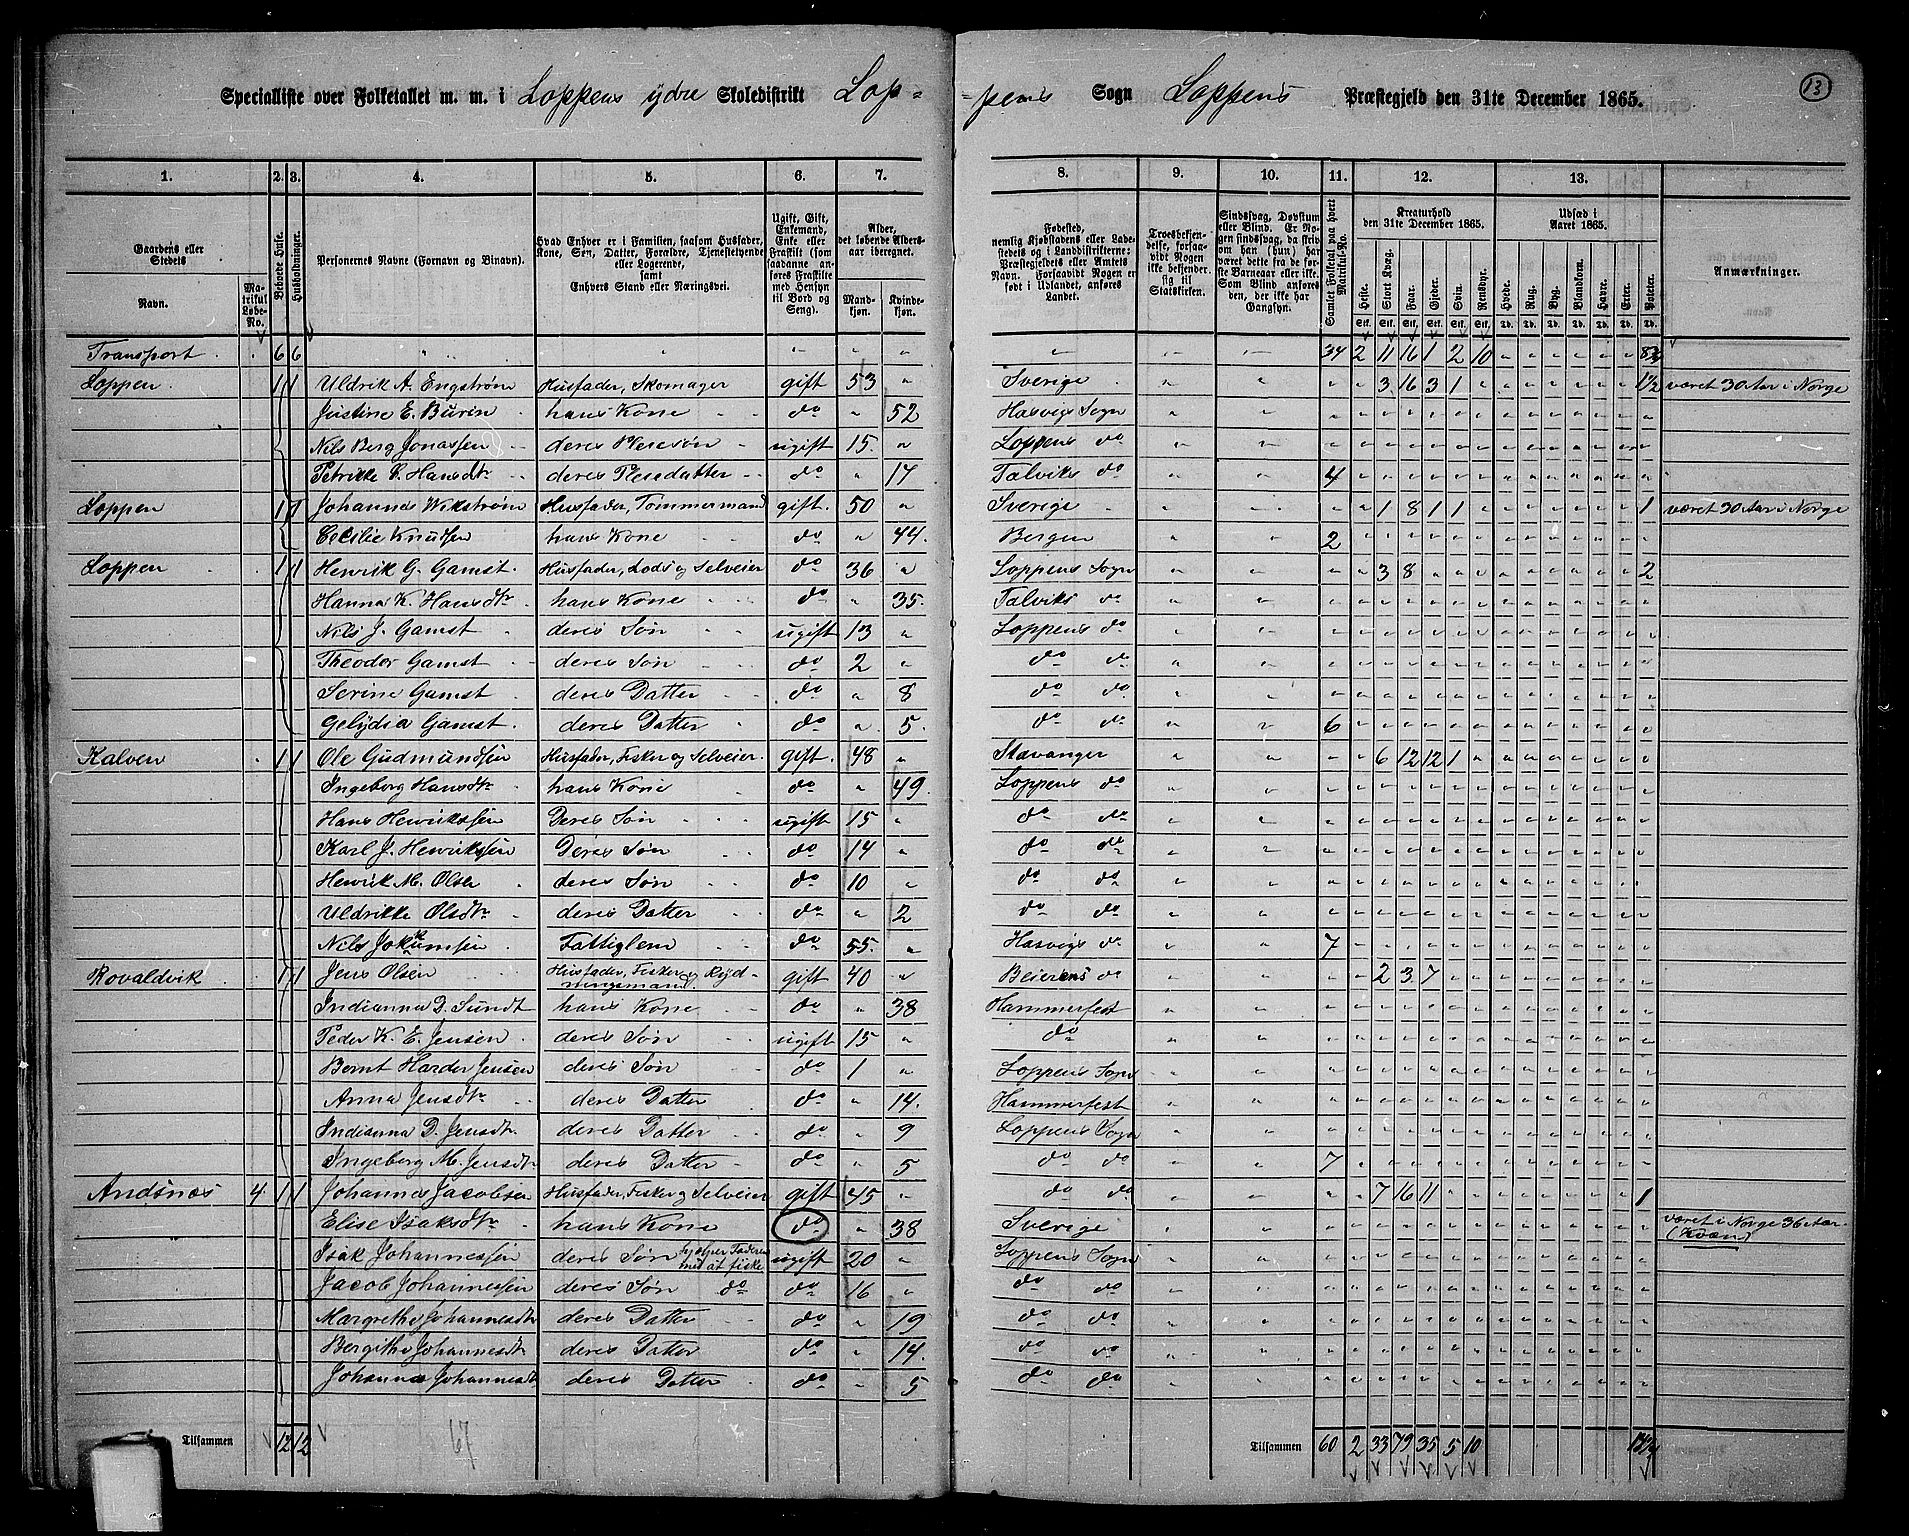 Specialliste over Folketallet m. m. i Loppens ydre Skoledistrikt Lop- -pens Sogn Loppens Præstegjeld den 31te December 1865.
13
1. 2. 3. 4. 5. 6. 7. 8. 9. 10. 11. 12. 13.
Gaardens eller Stedets
Navn.
Matrikul Løbe-No.
Beboede Huse.
Husholdninger.
Personernes Navne (Fornavn og Binavn).
Hvad Enhver er i Familien, saasom Husfader, Kone, Søn, Datter, Forældre, Tjenestetyende eller Logerende, samt Enhvers Stand eller Næringsvei.
Ugift, Gift, Enkemand, Enke eller Fraskilt (som saadanne anføres Fraskilte med Hensyn til Bord og Seng).
Alder, det løbende Aldersaar iberegnet.
Mandkjøn. Kvindekjøn.
Fødested, nemlig Kjøbstadens eller Ladestedets og i Landdistrikterne: Præstegjeldets eller Amtets Navn. Forsaavidt Nogen er født i Udlandet, anføres Landet.
Troesbekjendelse, forsaavidt Nogen ikke bekjender sig til Statskirken.
Sindssvag, Døvstum eller Blind. Er Nogen sindssvag, da skriv om han (hun) har været dette fra før 8te Barneaar eller ikke. Som Blind anføres den, der ikke har Gangsyn.
Samlet Folketal paa hvert Matrikul-No.
Kreaturhold den 31te December 1865.
Heste. Stort Kvæg. Faar. Gjeder. Svin. Rensdyr.
Udsæd i Aaret 1865.
Hvede. Rug. Byg. Blandkorn. Havre. Erter. Poteter.
Anmærkninger.
Transport 6 6 34 2 11 16 1 2 10
Loppen 1 1 Uldrik A. Engstrøm Husfader, Skomager gift 53 Sverige 3 16 3 1 1 1/2 været 30 Aar i Norge
Justine E. Buren hans Kone do 52 Hasvigs Sogn
Nils Berg Jonassen deres Pleiesøn ugift 15 Loppens do
Petrikke Hansdtr deres Pleiedatter do 17 Talviks do 4
Loppen 1 1 Johannes Wikstrøm Husfader, Tømmermand gift 50 Sverige 1 8 1 1 1 været 30 Aar i Norge
Cecilie Knudsen hans Kone do 44 Bergen 2
Loppen 1 1 Henrik G. Gamst Husfader, Lods og Selveier do 36 Loppens Sogn 3 8 2
Hanna K. Hansdtr hans Kone do 35 Talviks do
Nils J. Gamst deres Søn ugift 13 Loppens do
Theodor Gamst deres Søn do 2 do do
Serine Gamst deres Datter do 8 do do
Gelydia Gamst deres Datter do 5 do do 6
Kalven 1 1 Ole Gudmundsen Husfader, Fisker og Selveier gift 48 Stavanger 6 12 12 1
Ingeborg Hansdtr hans Kone do 49 Loppens do
Hans Henriksen Deres Søn ugift 15 do do
Karl J. Henriksen Deres Søn do 14 do do
Henrik M. Olsen deres Søn do 10 do do
Uldrikke Olsdtr deres Datter do 2 do do
Nils Jokumsen Fattiglem do 55 Hasvigs do 7
Rovaldvik 1 1 Jens Olsen Husfader, Fisker og Rydningsmand gift 40 Beierens do 2 3 7
Indianna D. Sundt hans Kone do 38 Hammerfest
Peder K. E. Jensen deres Søn ugift 15 do
Bernt Harder Jensen deres Søn do 1 Loppens Sogn
Anna Jensdtr deres Datter do 14 Hammerfest
Indianna D. Jensdtr deres Datter do 9 Loppens Sogn
Ingeborg M. Jensdtr deres Datter do 5 do do 7
Andsnæs 4 1 1 Johannes Jacobsen Husfader, Fisker og Selveier gift 45 do do 7 16 11 1
Elise Isaksdtr hans Kone do 38 Sverige været i Norge 36 Aar (Kvæn)
Isak Johannessen deres Søn hjælper Faderen med at fiske ugift 20 Loppens Sogn
Jacob Johannessen deres Søn do do 16 do do
Margrethe Johannesdtr deres Datter do 19 do do
Bergithe Johannesdtr deres Datter do 14 do do
Johanna Johannesdtr deres Datter do 5 do do
Tilsammen 12 12 67 Tilsammen 60 2 33 79 35 5 10